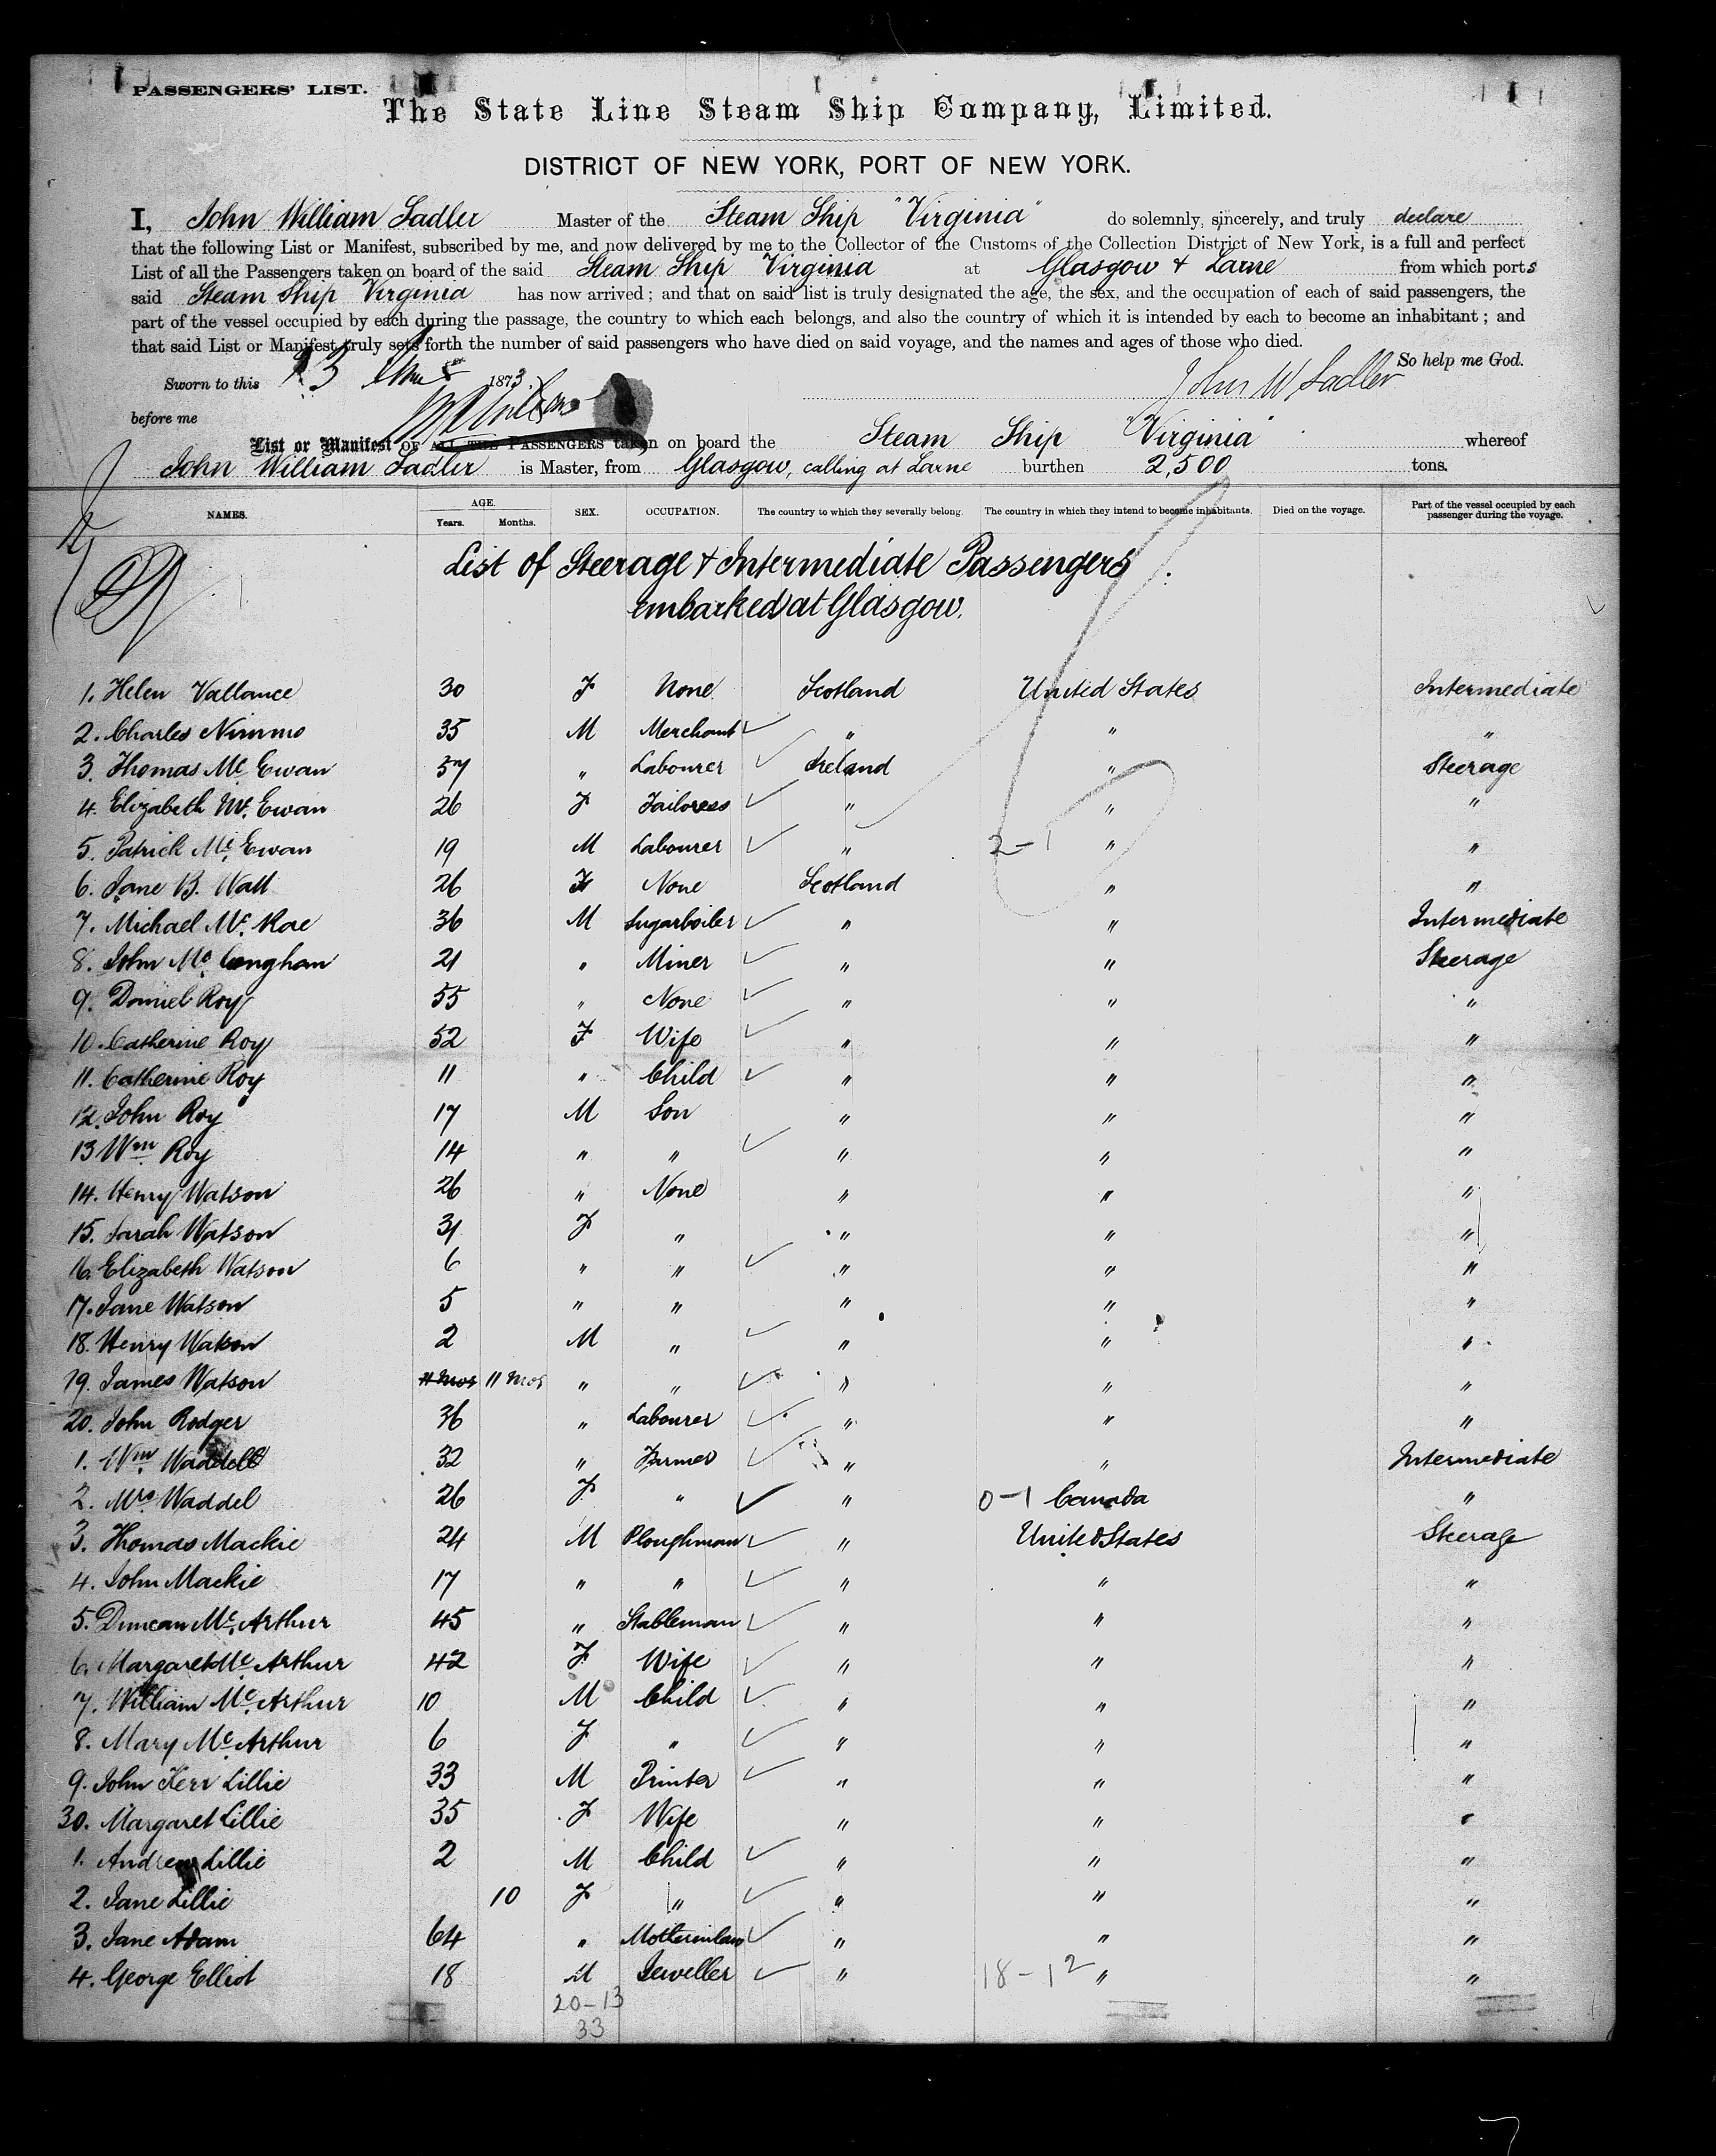 PASSENGERS' LIST.
The State Line Steam Ship Company, Limited.
DISTRICT OF NEW YORK, PORT OF NEW YORK.
I, John William Sadler Master of the Steam Ship "Virginia" do solemnly, sincerely, and truly declare
that the following List or Manifest, subscribed by me, and now delivered by me to the Collector of the Customs of the Collection District of New York, is a full and perfect
List of all the Passengers taken on board of the said Steam Ship Virginia at Glasgow & Larne from which ports
said Steam Ship Virginia has now arrived; and that on said list is truly designated the age, the sex, and the occupation of each of said passengers, the
part of the vessel occupied by each during the passage, the country to which each belongs, and also the country of which it is intended by each to become an inhabitant; and
that said List or Manifest truly sets forth the number of said passengers who have died on said voyage, and the names and ages of those who died.
So help me God.
Sworn to this 13 1873 John W Sadler
before me
List or Manifest OF ALL THE PASSENGERS taken on board the Steam Ship "Virginia" whereof
John William Sadler is Master, from Glasgow, calling at Larne burthen 2,500 tons.
NAMES. AGE. Years. Months. SEX. OCCUPATION. The country to which they severally belong. The country in which they intend to become inhabitants. Died on the voyage. Part of the vessel occupied by each passenger during the voyage.
List of Steerage & Intermediate Passengers
embarked at Glasgow.
1. Helen Vallance 30 F None Scotland United States Intermediate
2. Charles Nimmo 35 M Merchant " " "
3. Thomas Mc Ewan 37 " Labourer Ireland " Steerage
4. Elizabeth Mc. Ewan 26 F Tailoress " " "
5. Patrick Mc. Ewan 19 M Labourer " 2-1 " "
6. Jane B. Wall 26 F None Scotland " "
7. Michael Mc. Rae 36 M Sugarboiler " " Intermediate
8. John Mc. Conghan 21 " Miner " " Steerage
9. Daniel Roy 55 " None " " "
10. Catherine Roy 52 F Wife " " "
11. Catherine Roy 11 " Child " " "
12. John Roy 17 M Son " " "
13 Wm. Roy 14 " " " " "
14. Henry Watson 26 " None " " "
15. Sarah Watson 31 F " " " "
16. Elizabeth Watson 6 " " " " "
17. Jane Watson 5 " " " " "
18. Henry Watson 2 M " " " "
19. James Watson 11 mos 11 mos " " " " "
20. John Rodger 36 " Labourer " " "
1. Wm. Waddell 32 " Farmer " " Intermediate
2. Mrs Waddel 26 F " " 0-1 Canada "
3. Thomas Mackie 24 M Ploughman " United States Steerage
4. John Mackie 17 " " " " "
5. Duncan Mc. Arthur 45 " Stableman " " "
6. Margaret Mc Arthur 42 F Wife " " "
7. William Mc. Arthur 10 M Child " " "
8. Mary Mc Arthur 6 F " " " "
9. John Kerr Lillie 33 M Printer " " "
30. Margaret Lillie 35 F Wife " " "
1. Andrew Lillie 2 M Child " " "
2. Jane Lillie 10 F " " " "
3. Jane Adam 64 " Motherinlaw " " "
4. George Elliot 18 M Jeweller " 18-12 " "
20-13
33